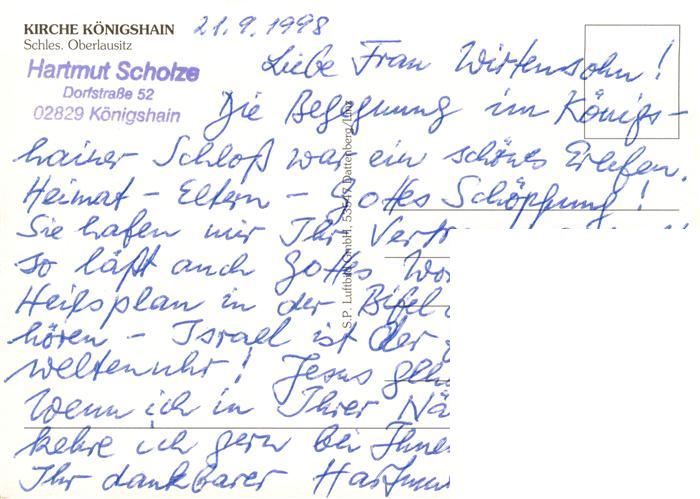 KIRCHE KÖNIGSHAIN
Schles. Oberlausitz
21.9.1998
Hartmut Scholze
Dorfstraße 52
02829 Königshain
Liebe Frau Wirtensohn!
Die Begegnung im Königs-
hainer Schloß war ein schönes Erleben.
Heimat - Eltern - Gottes Schöpfung!
Sie haben mir Ihr
so läßt auch Gottes
Heilsplan in der Bibel
hören - Israel ist der
weltenuhr! Jesus
Wenn ich in Ihrer
kehre ich gern bei
Ihr dankbarer
S.P. Luftbild GmbH, 53547 Dattenberg/Linz